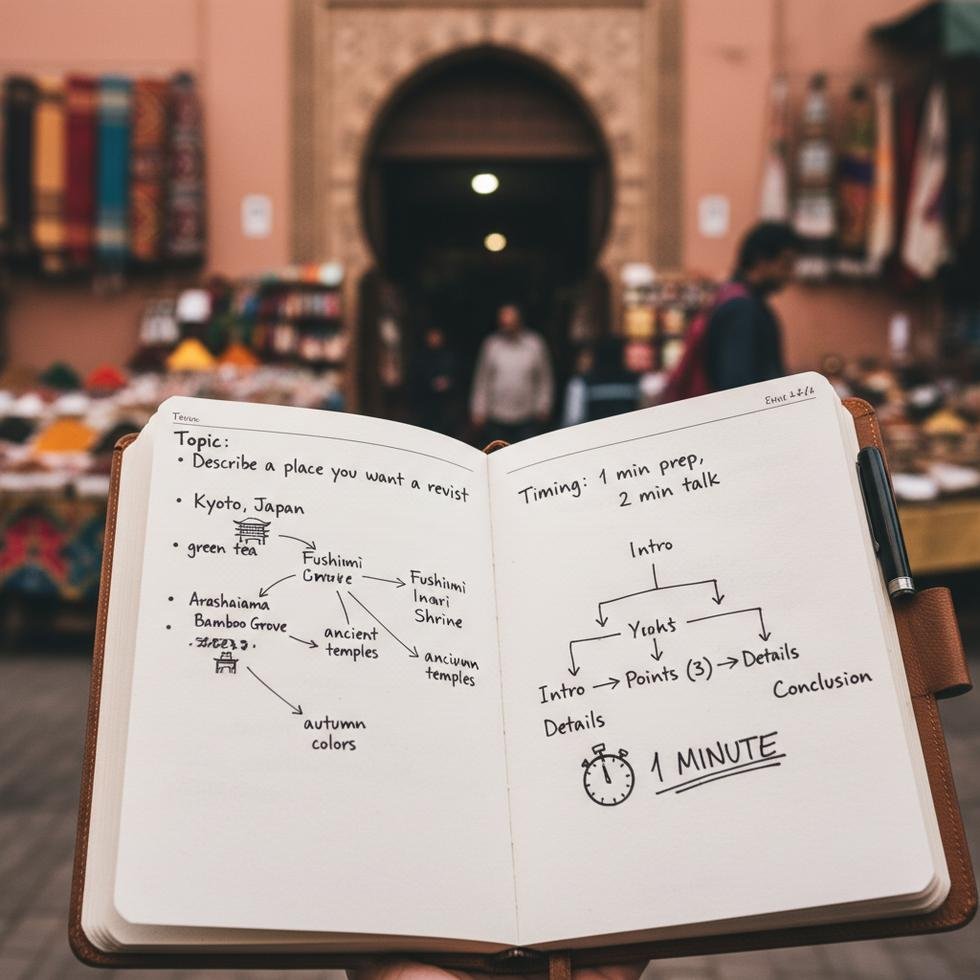 Topic:
• Describe a place you want a revist
• Kyoto, Japan
• green tea
Fushiimi
Fushiimi
Inari
Shrine
• Arashaiama
• Bamboo Grove
ancient
temples
temples
autumn
colors
Timing: 1 min prep,
2 min talk
Intro
Intro → Points (3) → Details
Conclusion
Details
1 MINUTE